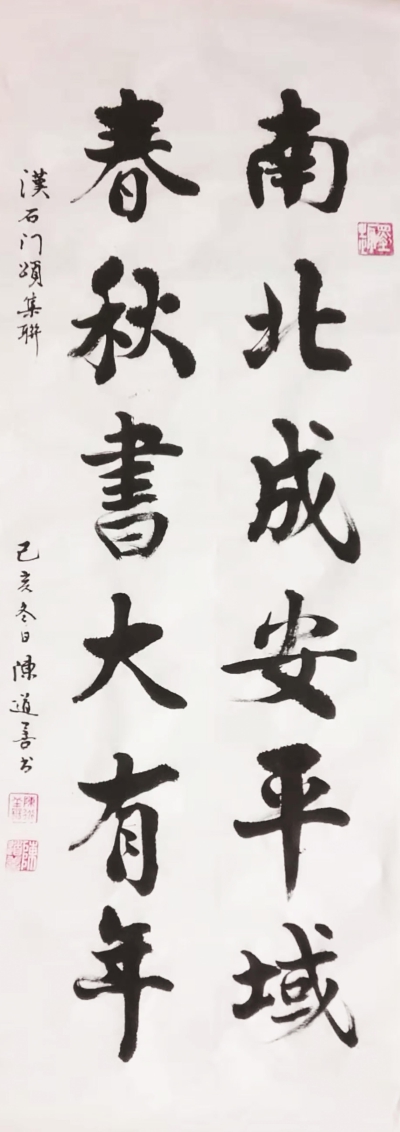 南北成安平域
春秋書大有年
漢石门頌集聯
己亥冬日陳道善书